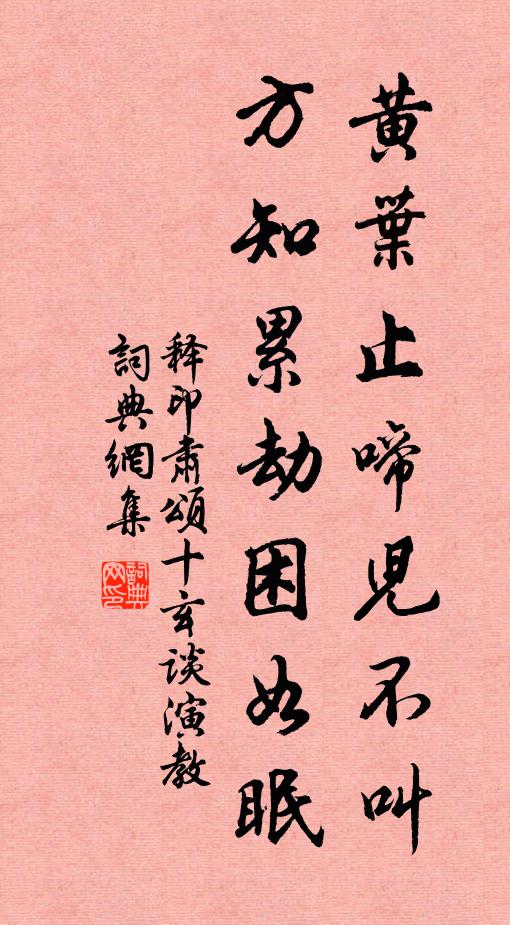 黃葉止啼兒不叫
方知累劫困如眠
释印肅頌十玄談演教
詞典網集
詞典網印